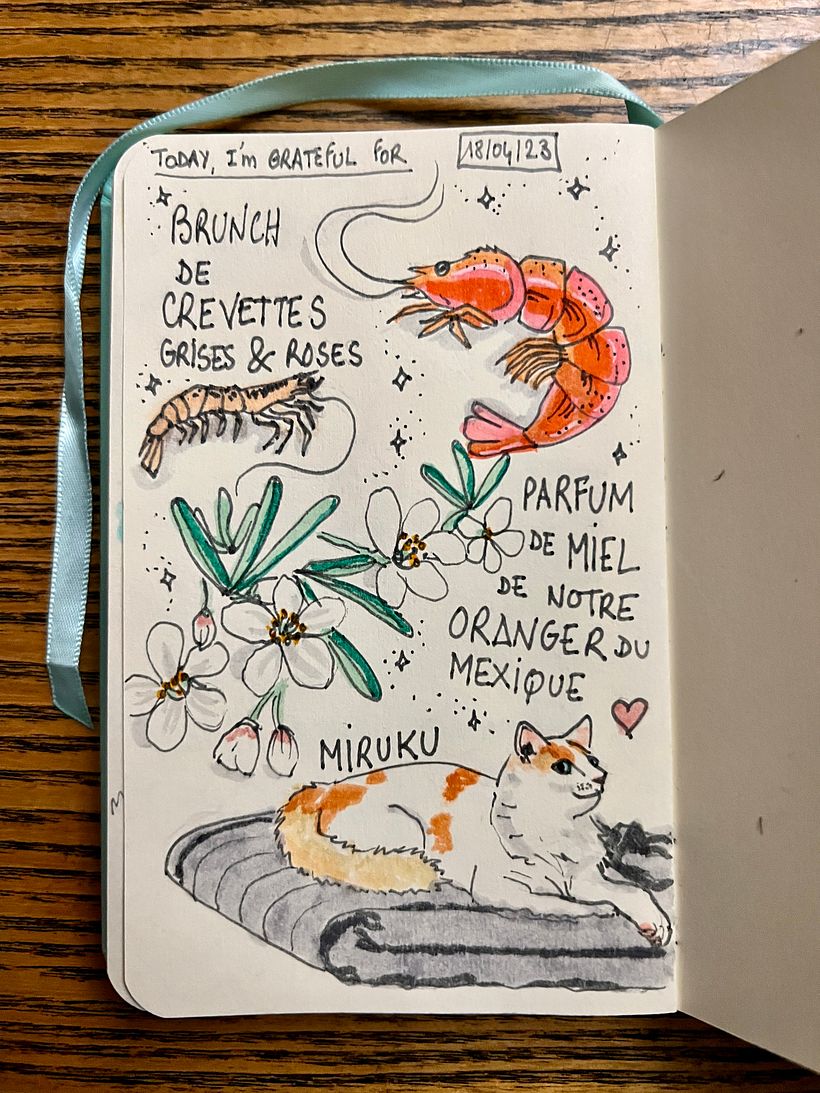 TODAY, I'm GRATEFUL FOR
18/04/23
BRUNCH
DE
CREVETTES
GRISES & ROSES
PARFUM
DE MIEL
DE NOTRE
ORANGER DU
MEXIQUE
MIRUKU